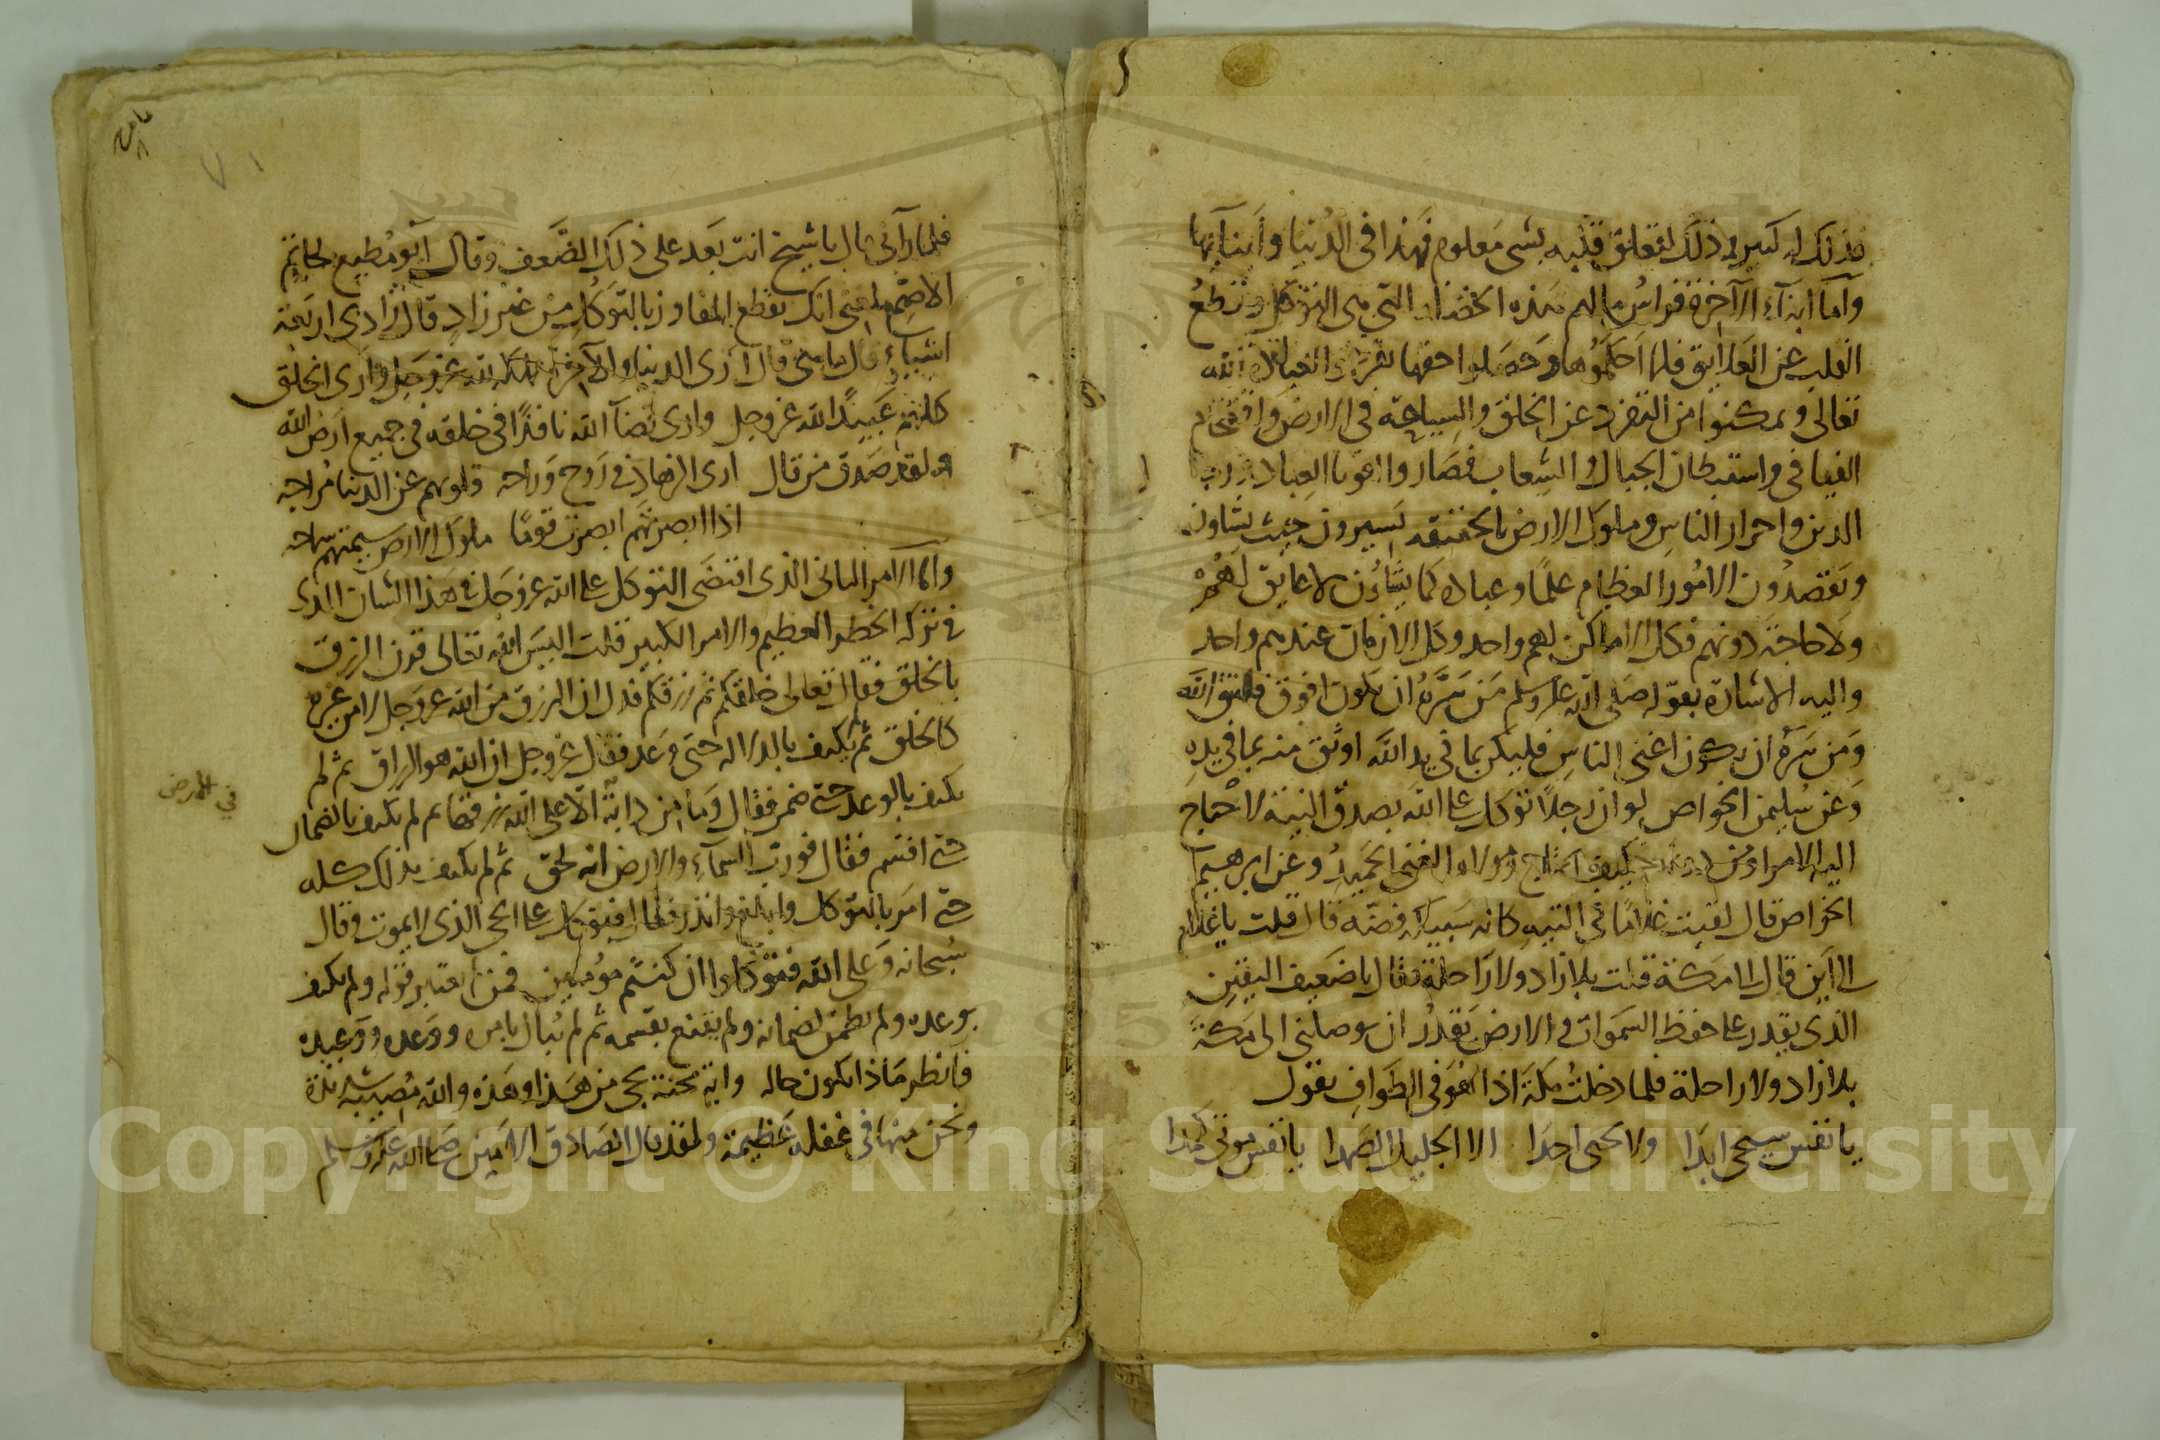 فذلك له كبير في ذلك لتعلق قلبه بشى معلوم فهذا في الدنيا وأبنآيها
وأما ابنآء الآخرة فراس مالهم هذه الخصلة التي هى التوكل وقطع
القلب عن العلايق فلما احكموها وحصلوا حقها تفرغوا لعبادة الله
تعالى وتمكنوا من التفرد عن الخلق والسياحة في الارض واقتحام
الفيافي واستبطان الجبال والشعاب فصاروا اقويا العباد ورجال
الدين واحرار الناس وملوك الارض بالحقيقة يسيرون حيث يشاون
ويقصدون الامور العظام علما وعبادة كما يشاؤن لا عايق لهم
ولا حاجز دونهم فكل الاماكن لهم واحد وكل الازمان عندهم واحد
واليه الاشارة بقوله صلى الله عليه وسلم من سره ان يكون اقوى فليتق الله
ومن سره ان يكون اغنى الناس فليكن بما في يد الله اوثق منه بما في يده
وعن سليمن الخواص لو ان رجلا توكل على الله بصدق النية لاحتاج
اليه الامراء ومن دونهم وكيف يحتاج ومولاه الغني الحميد وعن ابرهيم
الخواص قال لقيت غلاما في التيه كانه سبيكة فضة قال قلت يا غلام
الى اين قال الى مكة قلت بلا زاد ولا راحلة فقال يا ضعيف اليقين
الذي يقدر على حفظ السموات والارض يقدر ان يوصلني الى مكة
بلا زاد ولا راحلة فلما دخلت مكة اذا هو في الطواف يقول
يا نفس سيحي ابدا ولا تحبى احدا الا الجليل الصمدا يا نفس موتى كمدا
فلما رآني قال يا شيخ انت بعد على ذلك الضعف وقال ابو مطيع لحاتم
الاصم بلغنى انك تقطع المفاوز بالتوكل من غير زاد قال زادي اربعة
اشياء قال ما هى قال ارى الدنيا والآخرة مملكة لله عز وجل وارى الخلق
كلهم عبيدا لله عز وجل وارى قضآ الله نافذا في خلقه في جميع ارض الله
ولقد صدق من قال ارى الزهاد في روح وراحه قلوبهم عن الدنيا مزاحه
اذا ابصرتهم ابصرت قوما ملوك الارض سيمتهم سماحه
وأما الامر الثاني الذى اقتضى التوكل على الله عز وجل في هذا الشان الذى
في تركه الخطر العظيم والامر الكبير قلت اليس الله تعالى قرن الرزق
بالخلق فقال تعالى خلقكم ثم رزقكم فدل ان الرزق من الله عز وجل لا من غيره
كالخلق ثم لم يكتف بالدلاله حتى وعد فقال عز وجل ان الله هو الرزاق ثم لم
يكتف بالوعد حتى ضمن فقال وما من دابة الا على الله رزقها ثم لم يكتف بالضمان
في الارض
حتى اقسم فقال فورب السمآء والارض انه لحق ثم لم يكتف بذلك كله
حتى امر بالتوكل وابلغ وانذر فقال وتوكل على الحي الذى لا يموت وقال
سبحانه وعلى الله فتوكلوا ان كنتم مومنين فمن لم يعتبر قوله ولم يكتف
بوعده ولم يطمئن لضمانه ولم يقنع بقسمه ثم لم يبال بامره ووعده ووعيده
فانظر ماذا يكون حاله واية محنة تجى من هذا وهذه والله مصيبة شديدة
ونحن منها في غفلة عظيمة ولقد قال الصادق الامين صلى الله عليه وسلم
Copyright © King Saud University